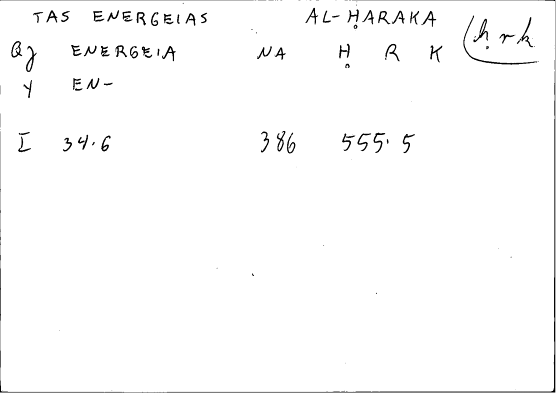 TAS ENERGEIAS AL-ḤARAKA (ḥrk
Qj ENERGEIA NA Ḥ R K
Y EN-
I 34.6 386 555.5